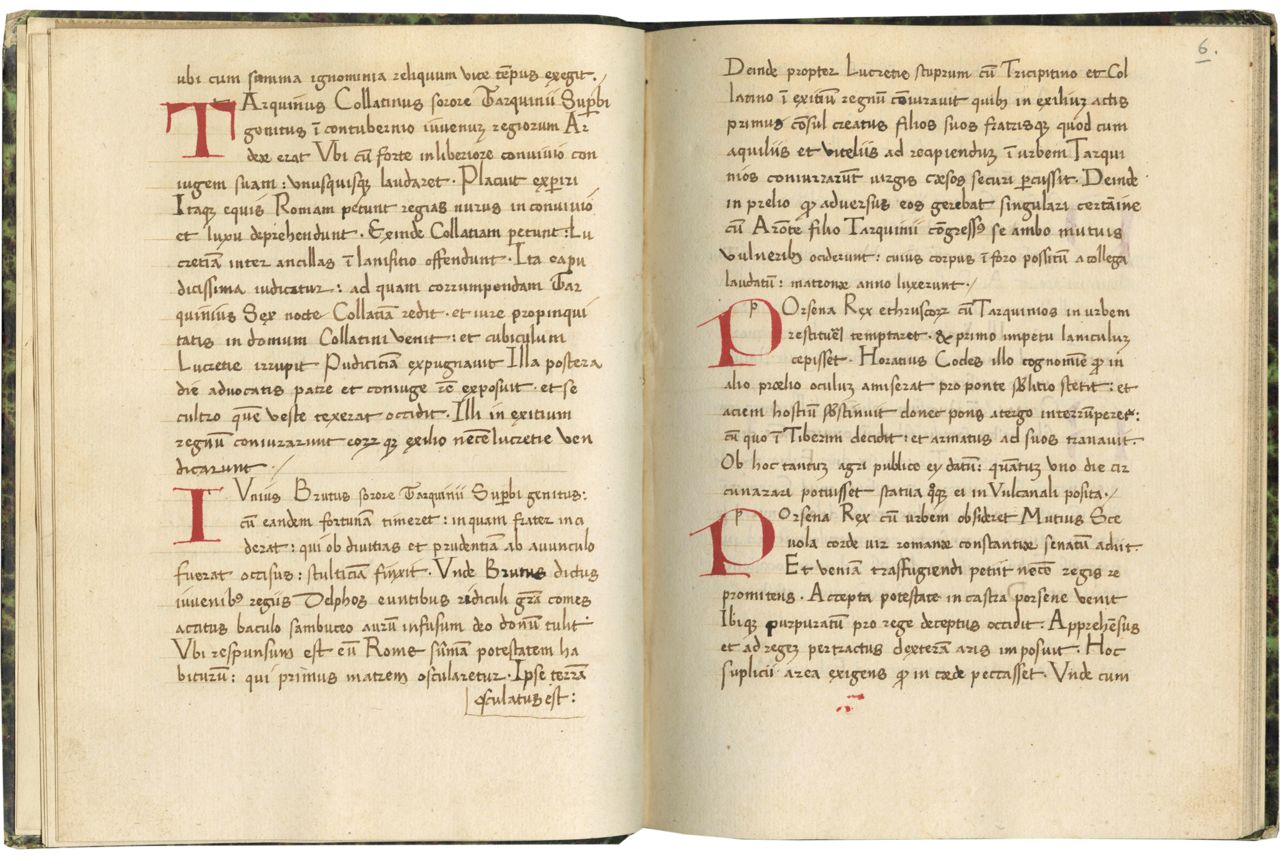 ubi cum summa ignominia reliquum vite tẽpus exegit ·/
TArquinius Collatinus sorore Tarquinii Supbi
genitus ĩ contubernio iuvenuʒ regiorum Ar
deæ erat Vbi cũ forte in liberiore convivio con
iugem suam : unusquisqʒ laudaret · Placuit experiri
Itaqʒ equis Romam petunt regias nurus in convivio
et luxu deprehendunt · Exinde Collatiam petunt : Lu
cretiã inter ancillas ĩ lanifitio offendunt · Ita eapu
dicissima iudicatur : ad quam corrumpendam Tar
quinius Sex nocte Collatiã redit · et iure propinqui
tatis in domum Collatini venit : et cubiculum
Lucretie irrupit Pudicitiã expugnauit Illa postera
die advocatis patre et coniuge rẽ exposuit · et se
cultro quẽ veste texerat occidit · Illi in exitium
regnũ coniurarunt eoꝝ qʒ exilio necẽ lucretie ven
dicarunt ·/
IVnius Brutus sorore Tarquinii Supbi genitus :
cũ eandem fortunã timeret : in quam frater inci
derat : qui ob divitias et prudentiã ab avunculo
fuerat occisus : stulticiã finxit · Vnde Brutus dictus
iuvenibꝰ regiis Delphos euntibus ridiculi grã comes
acitus baculo sambuceo aurũ infusum deo donũ tulit
Vbi responsum est eũ Rome sũmã potestatem ha
biturũ : qui primus matrem oscularetur · Ipse terrã
osculatus est :
6.
Deinde propter Lucretie stuprum cũ Tricipitino et Col
latino ĩ exitiũ regnũ cõiuravit quibꝰ in exiliuʒ actis
primus cõsul creatus filios suos fratrisqʒ quod cum
aquiliis et viteliis ad recipienduʒ ĩ urbem Tarqui
nios coniurarũt virgis cæsos securi pcussit · Deinde
in prelio ꝙ adversus eos gerebat singulari certãine
cũ Arõte filio Tarquinii cõgressꝰ se ambo mutuis
vulneribꝰ ociderunt : cuius corpus ĩ foro possitũ a collega
laudatũ : matronæ anno luxerunt ·/
p
POrsena Rex ethruscoꝝ cũ Tarquinios in urbem
restitueẽ temptaret · & primo impetu Ianiculuʒ
cepisset · Horatius Cocles illo cognomie ꝙ in
alio prœlio oculuʒ amiserat pro ponte Sblitio stetit : et
aciem hostiũ sbstinuit donec pons atergo interrũperetr :
cũ quo ĩ Tiberim decidit : et armatus ad suos tranavit
Ob hoc tantuʒ agri publico ey datũ : quãtuʒ uno die cir
cunarari potuisset statua qꝙ ei in Vulcanali posita ·/
p
POrsena Rex cũ urbem obsideret Mutius Sce
vola corde vir romanæ constantiæ senatũ adiit
Et veniã trasfugiendi petiit necẽ regis re
promitens · Accepta potestate in castra porsene venit
Ibiqʒ purpuratũ pro rege deceptus occidit · Apprehẽsus
et ad regeʒ pertractus dexterã aris imposuit · Hoc
suplicii area exigens ꝙ in cæde peccasset · Vnde cum